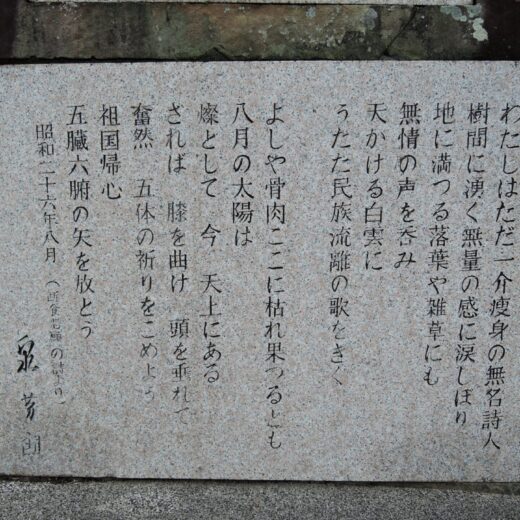 わたしはただ一介痩身の無名詩人
樹間に湧く無量の感に涙しぼり
地に満つる落葉や雑草にも
無情の声を呑み
天かける白雲に
うたた民族流離の歌をきく
よしや骨肉ここに枯れ果つるとも
八月の太陽は
燦として 今 天上にある
されば 膝を曲け 頭を垂れて
奮然 五体の祈りをこめよう
祖国帰心
五臓六腑の矢を放とう
昭和二十六年八月 (断食悲願の詩より)
泉芳朗